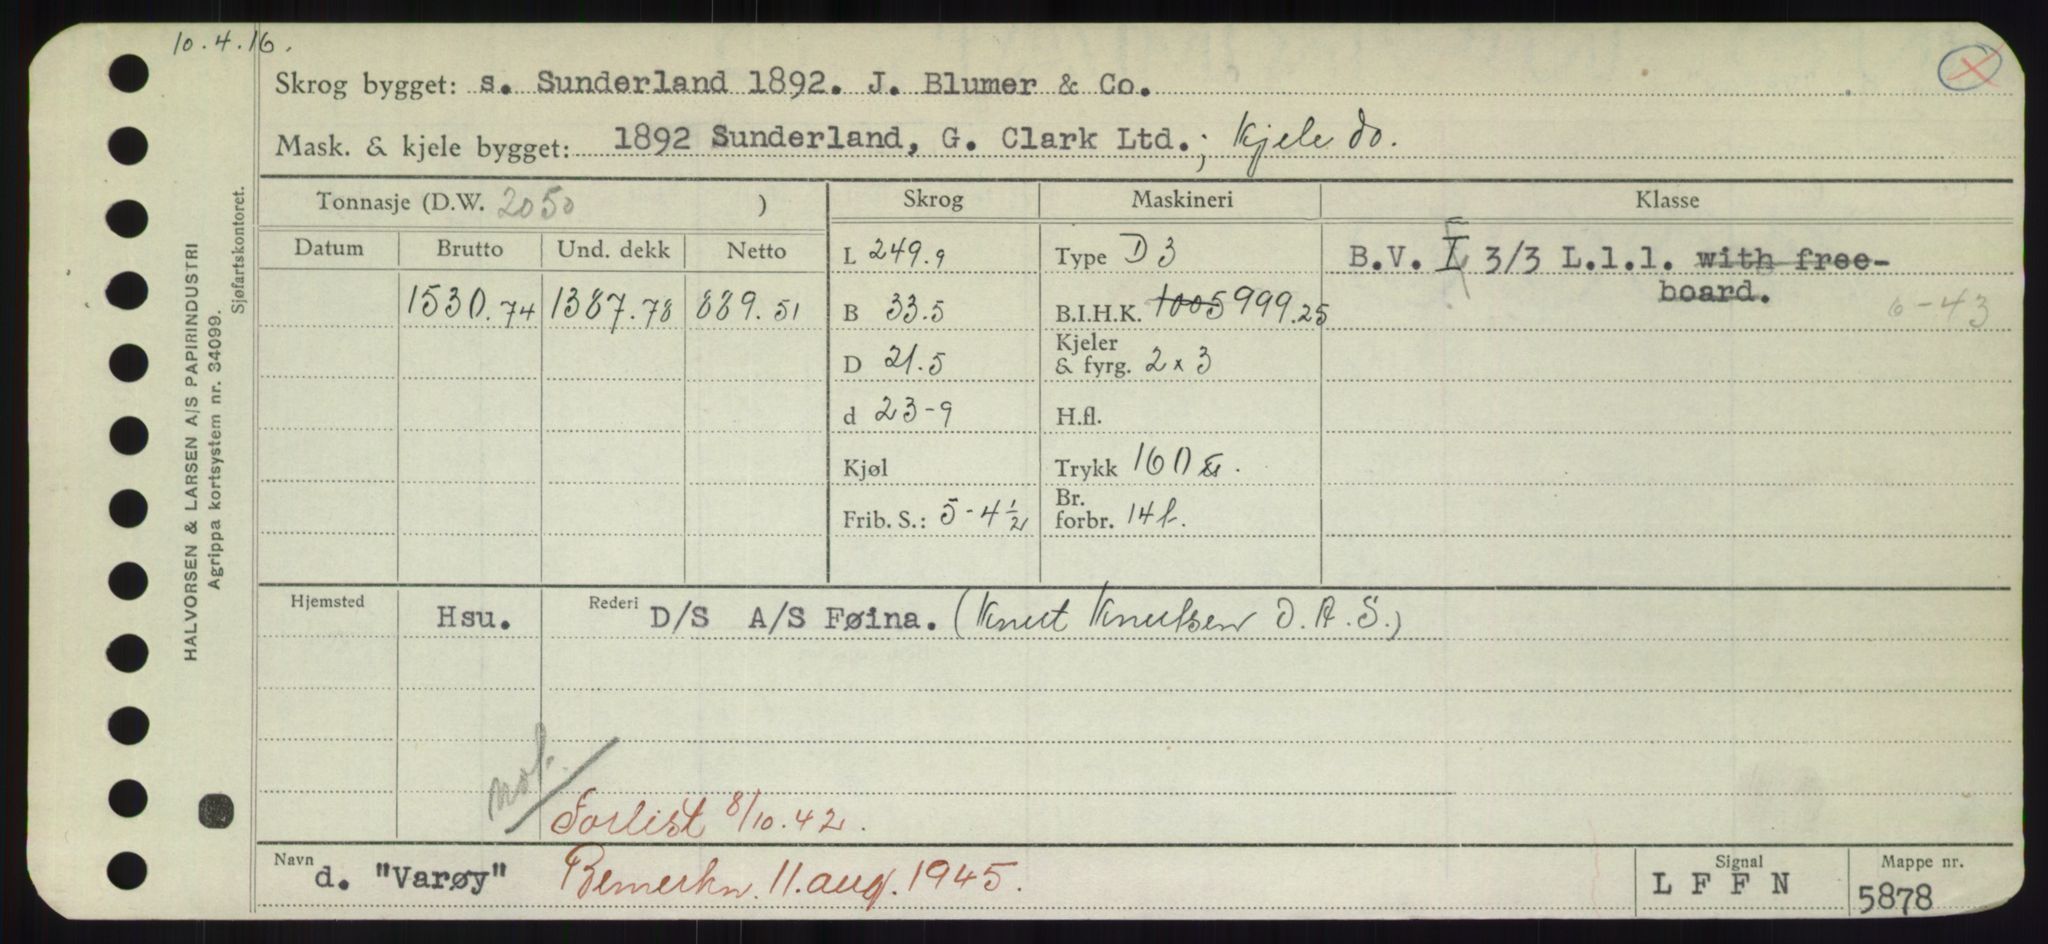 10.4.16.
Skrog bygget: s. Sunderland 1892. J. Blumer & Co.
Mask. & kjele bygget: 1892 Sunderland, G. Clark Ltd.; Kjele do.
Tonnasje (D.W. 2050 )
Skrog
Maskineri
Klasse
Datum
Brutto
Und. dekk
Netto
1530.74
1387.78
889.51
L 249.9
B 33.5
D 21.5
d 23-9
Kjøl
Frib. S.: 5-4½
Type D 3
B.I.H.K. 1005 999.25
Kjeler
& fyrg. 2 x 3
H.fl.
Trykk 160
Br.
forbr. 14 t.
B.V. I 3/3 L.l.l. with free-
board.
6-43
Hjemsted Hsu.
Rederi D/S A/S Føina. (Knut Knutsen O.A.S.)
not.
Forlist 8/10.42.
Navn d. "Varøy" Bemerkn. 11. aug. 1945.
Signal
L F F N
Mappe nr.
5878
HALVORSEN & LARSEN A/S PAPIRINDUSTRI
Agrippa kortsystem nr. 34099.
Sjøfartskontoret.